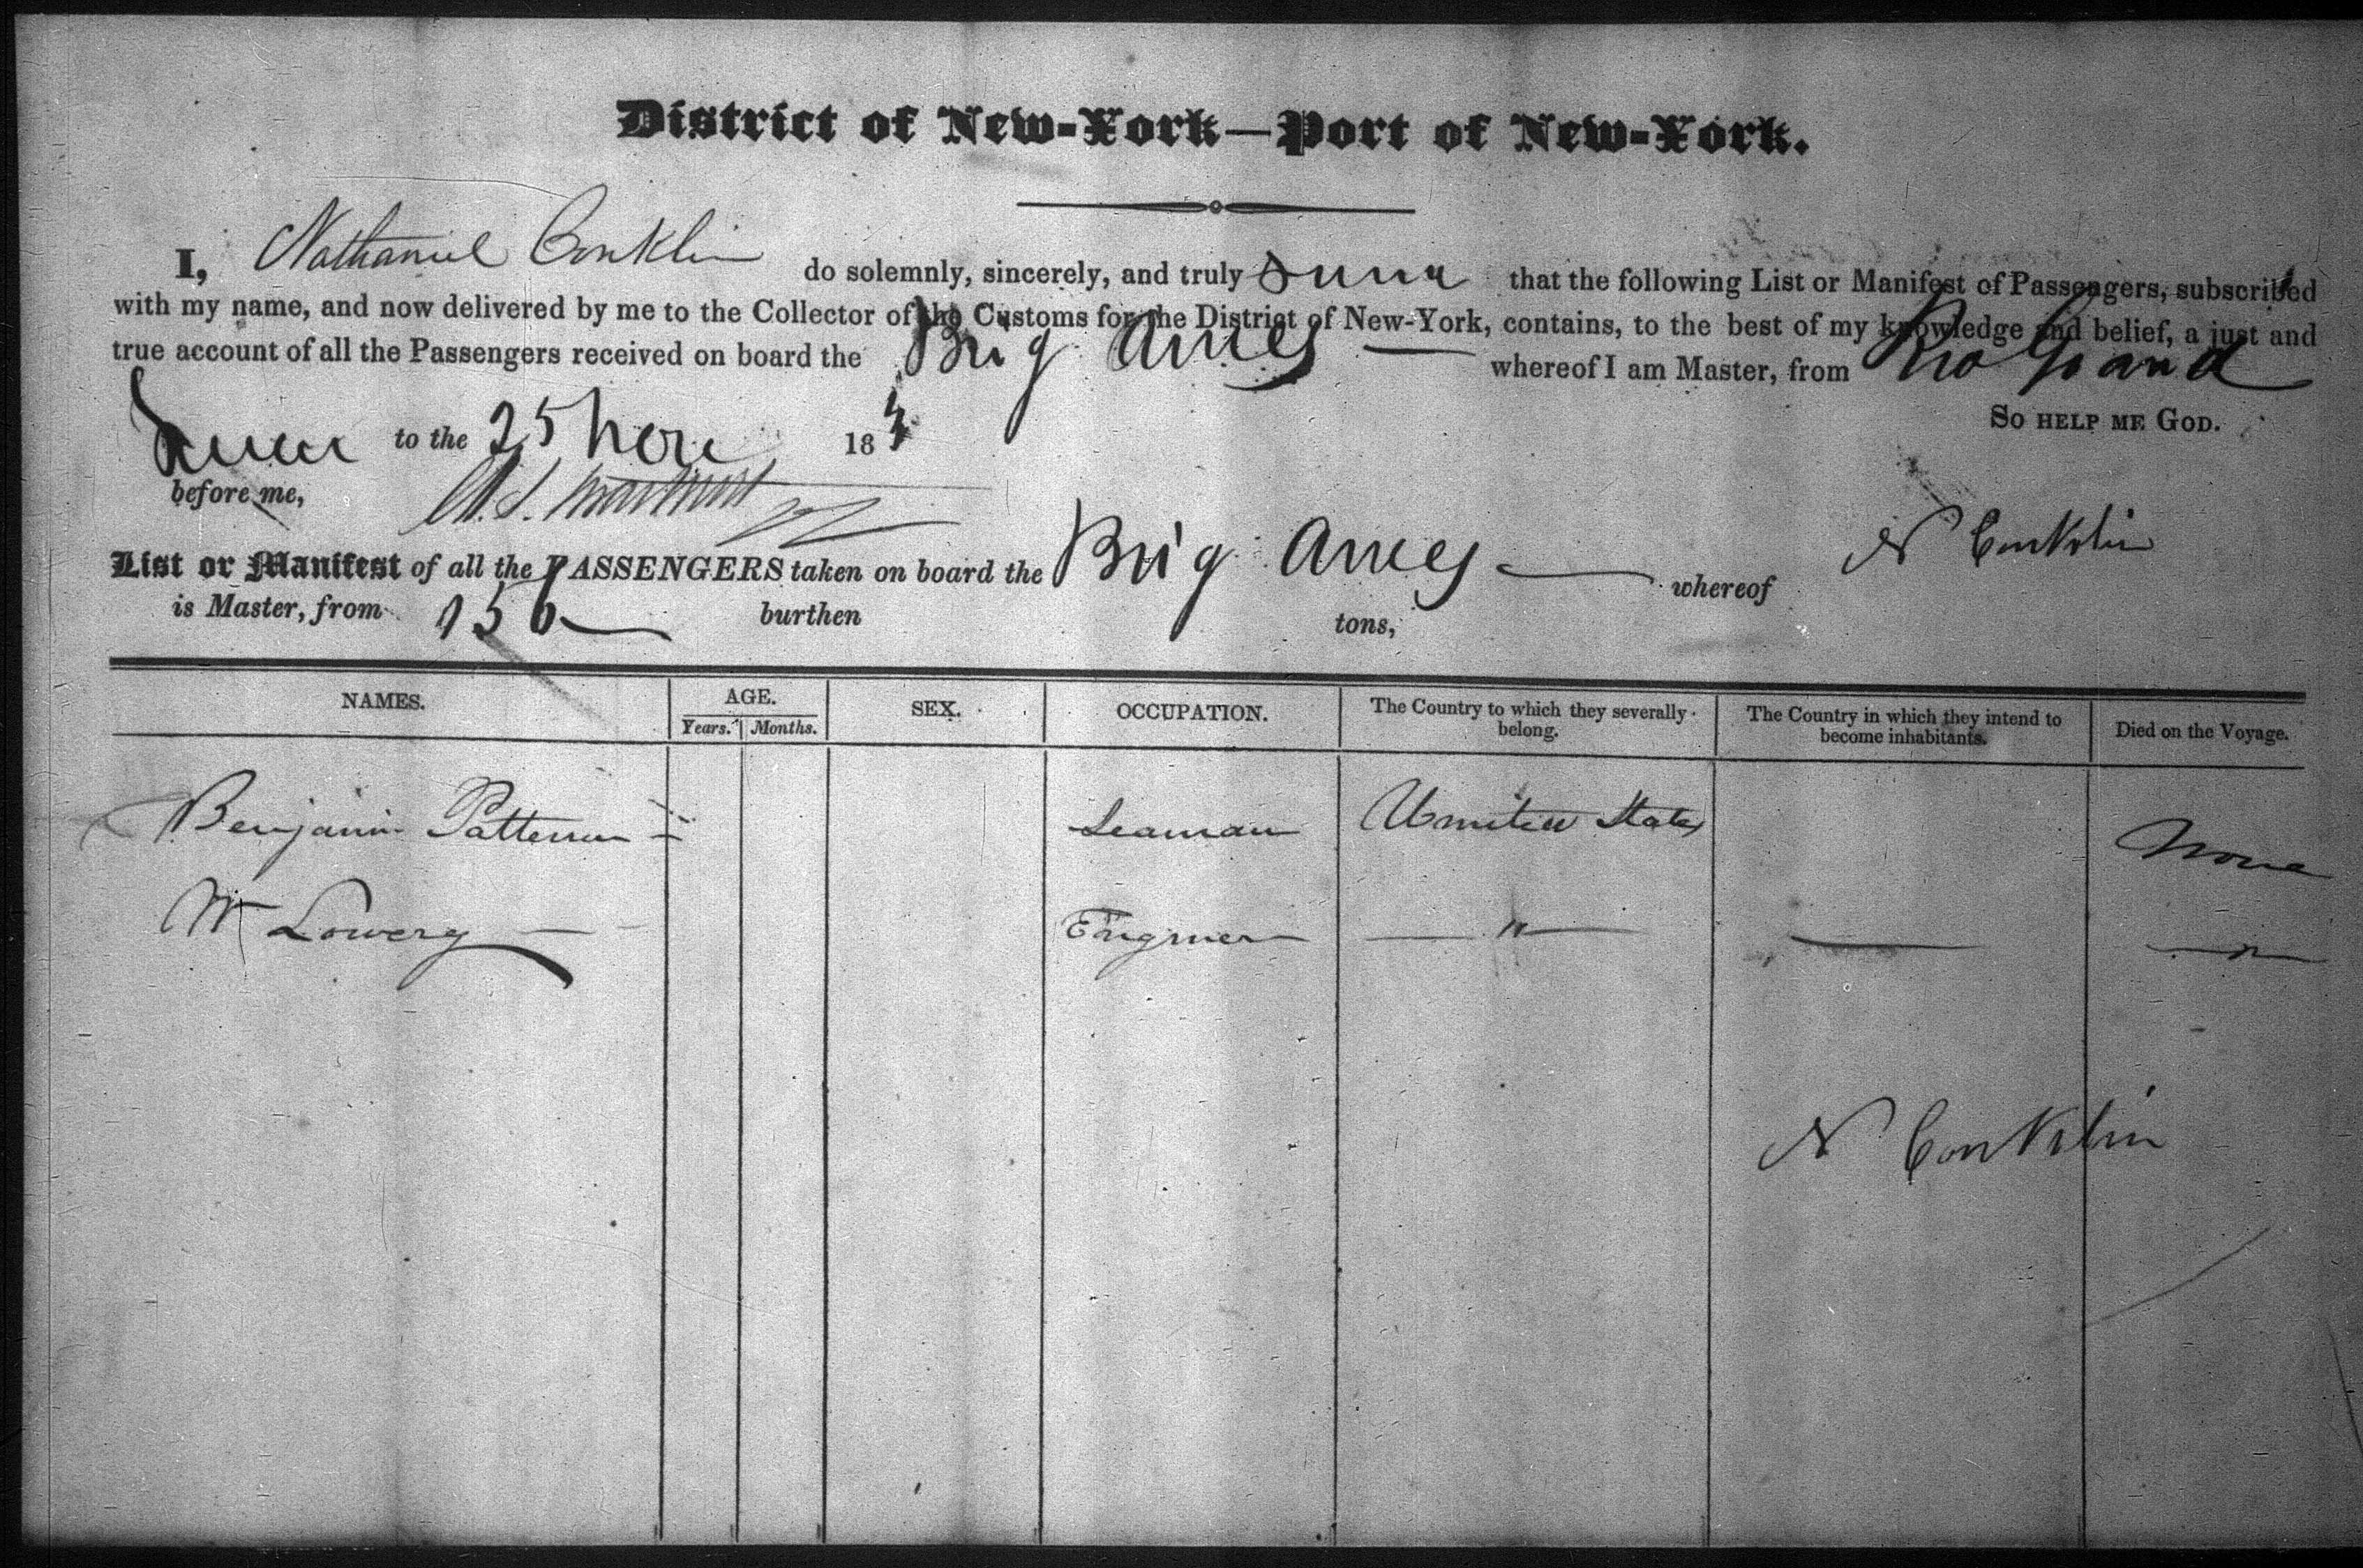 District of New-York—Port of New-York.
I, Nathaniel Conklin do solemnly, sincerely, and truly that the following List or Manifest of Passengers, subscribed
with my name, and now delivered by me to the Collector of the Customs for the District of New-York, contains, to the best of my knowledge and belief, a just and
true account of all the Passengers received on board the Brig whereof I am Master, from Rio Grand
So HELP ME GOD.
to the 25 18
before me,
List or Manifest of all the PASSENGERS taken on board the Brig whereof N Conklin
is Master, from 156 burthen tons,
NAMES. AGE. SEX. OCCUPATION. The Country to which they severally belong. The Country in which they intend to become inhabitants. Died on the Voyage.
Years. Months.
Benjamin Patterson Seaman United States None
Lowery Engineer — " — — "
N Conklin